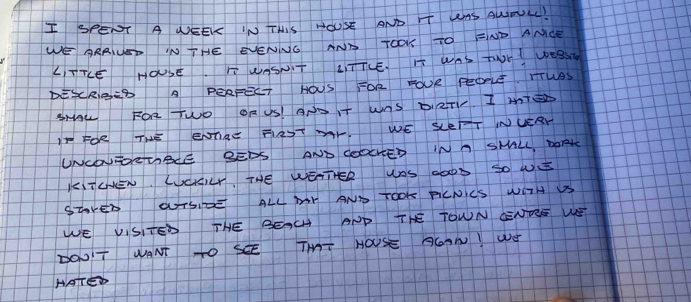 I SPENT A WEEK IN THIS HOUSE AND IT WAS AWFULL!
WE ARRIVED IN THE EVENING AND TOOK TO FIND A NICE
LITTLE HOUSE. IT WASN'T LITTLE. IT WAS TINY! WEBSITE
DESCRIBED A PERFECT HOUS FOR FOUR PEOPLE. IT WAS
SMALL FOR TWO OF US! AND IT WAS DIRTY I HATED
IT FOR THE ENTIRE FIRST DAY. WE SLEPT IN VERY
UNCONFORTABLE BEDS AND COOCKED IN A SMALL, DARK
KITCHEN. LUCKILY, THE WEATHER WAS GOOD SO WE
STAYED OUTSIDE ALL DAY AND TOOK PICNICS WITH US
WE VISITED THE BEACH AND THE TOWN CENTRE WE
DON'T WANT TO SEE THAT HOUSE AGAIN! WE
HATED